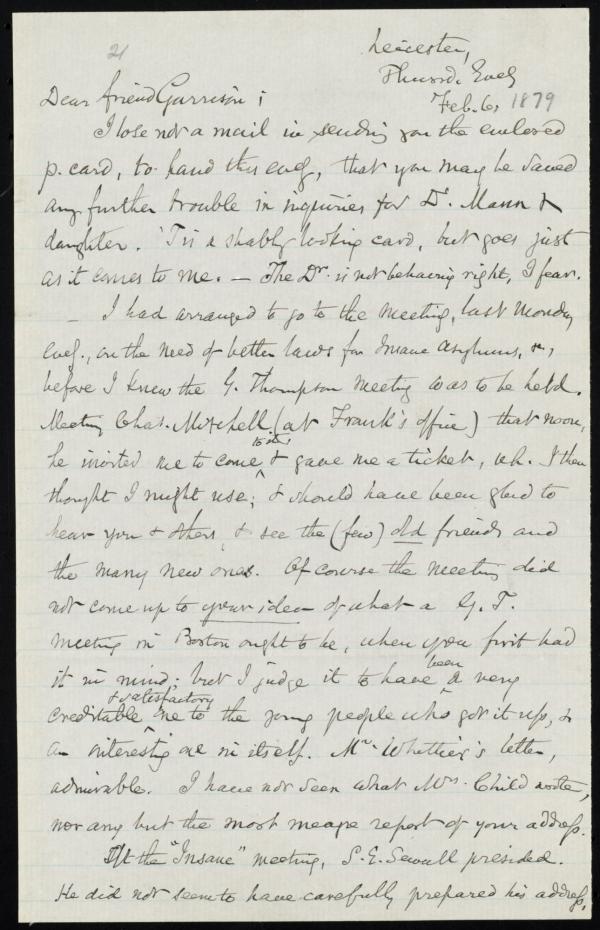 21
Leicester,
Thursd. Eveg
Feb. 6, 1879
Dear friend Garrison;
I lose not a mail in sending you the enclosed
p. card, to hand this eveg, that you may be saved
any further trouble in inquiries for Dr. Mann &
daughter. 'Tis a shably looking card, but goes just
as it comes to me. — The Dr. is not behaving right, I fear.
— I had arranged to go to the meeting, last Monday
eveg., on the need of better laws for Insane Asylums, &c,
before I knew the G. Thompson meeting was to be held.
Meeting Chas. Mitchell (at Frank's office) that noon,
he invited me to come, to it & gave me a ticket, wh. I then
thought I might use; & should have been glad to
hear you & others, & see the (few) old friends and
the many new ones. Of course the meeting did
not come up to your idea of what a G. T.
meeting in Boston ought to be, when you first had
it in mind; but I judge it to have been a very
creditable & satisfactory one to the young people who got it up, &
an interesting one in itself. Mr. Whittier's letter,
admirable. I have not seen what Mrs. Child wrote,
nor any but the most meagre report of your address.
At the "Insane" meeting, S. E. Sewall presided.
He did not seem to have carefully prepared his address,